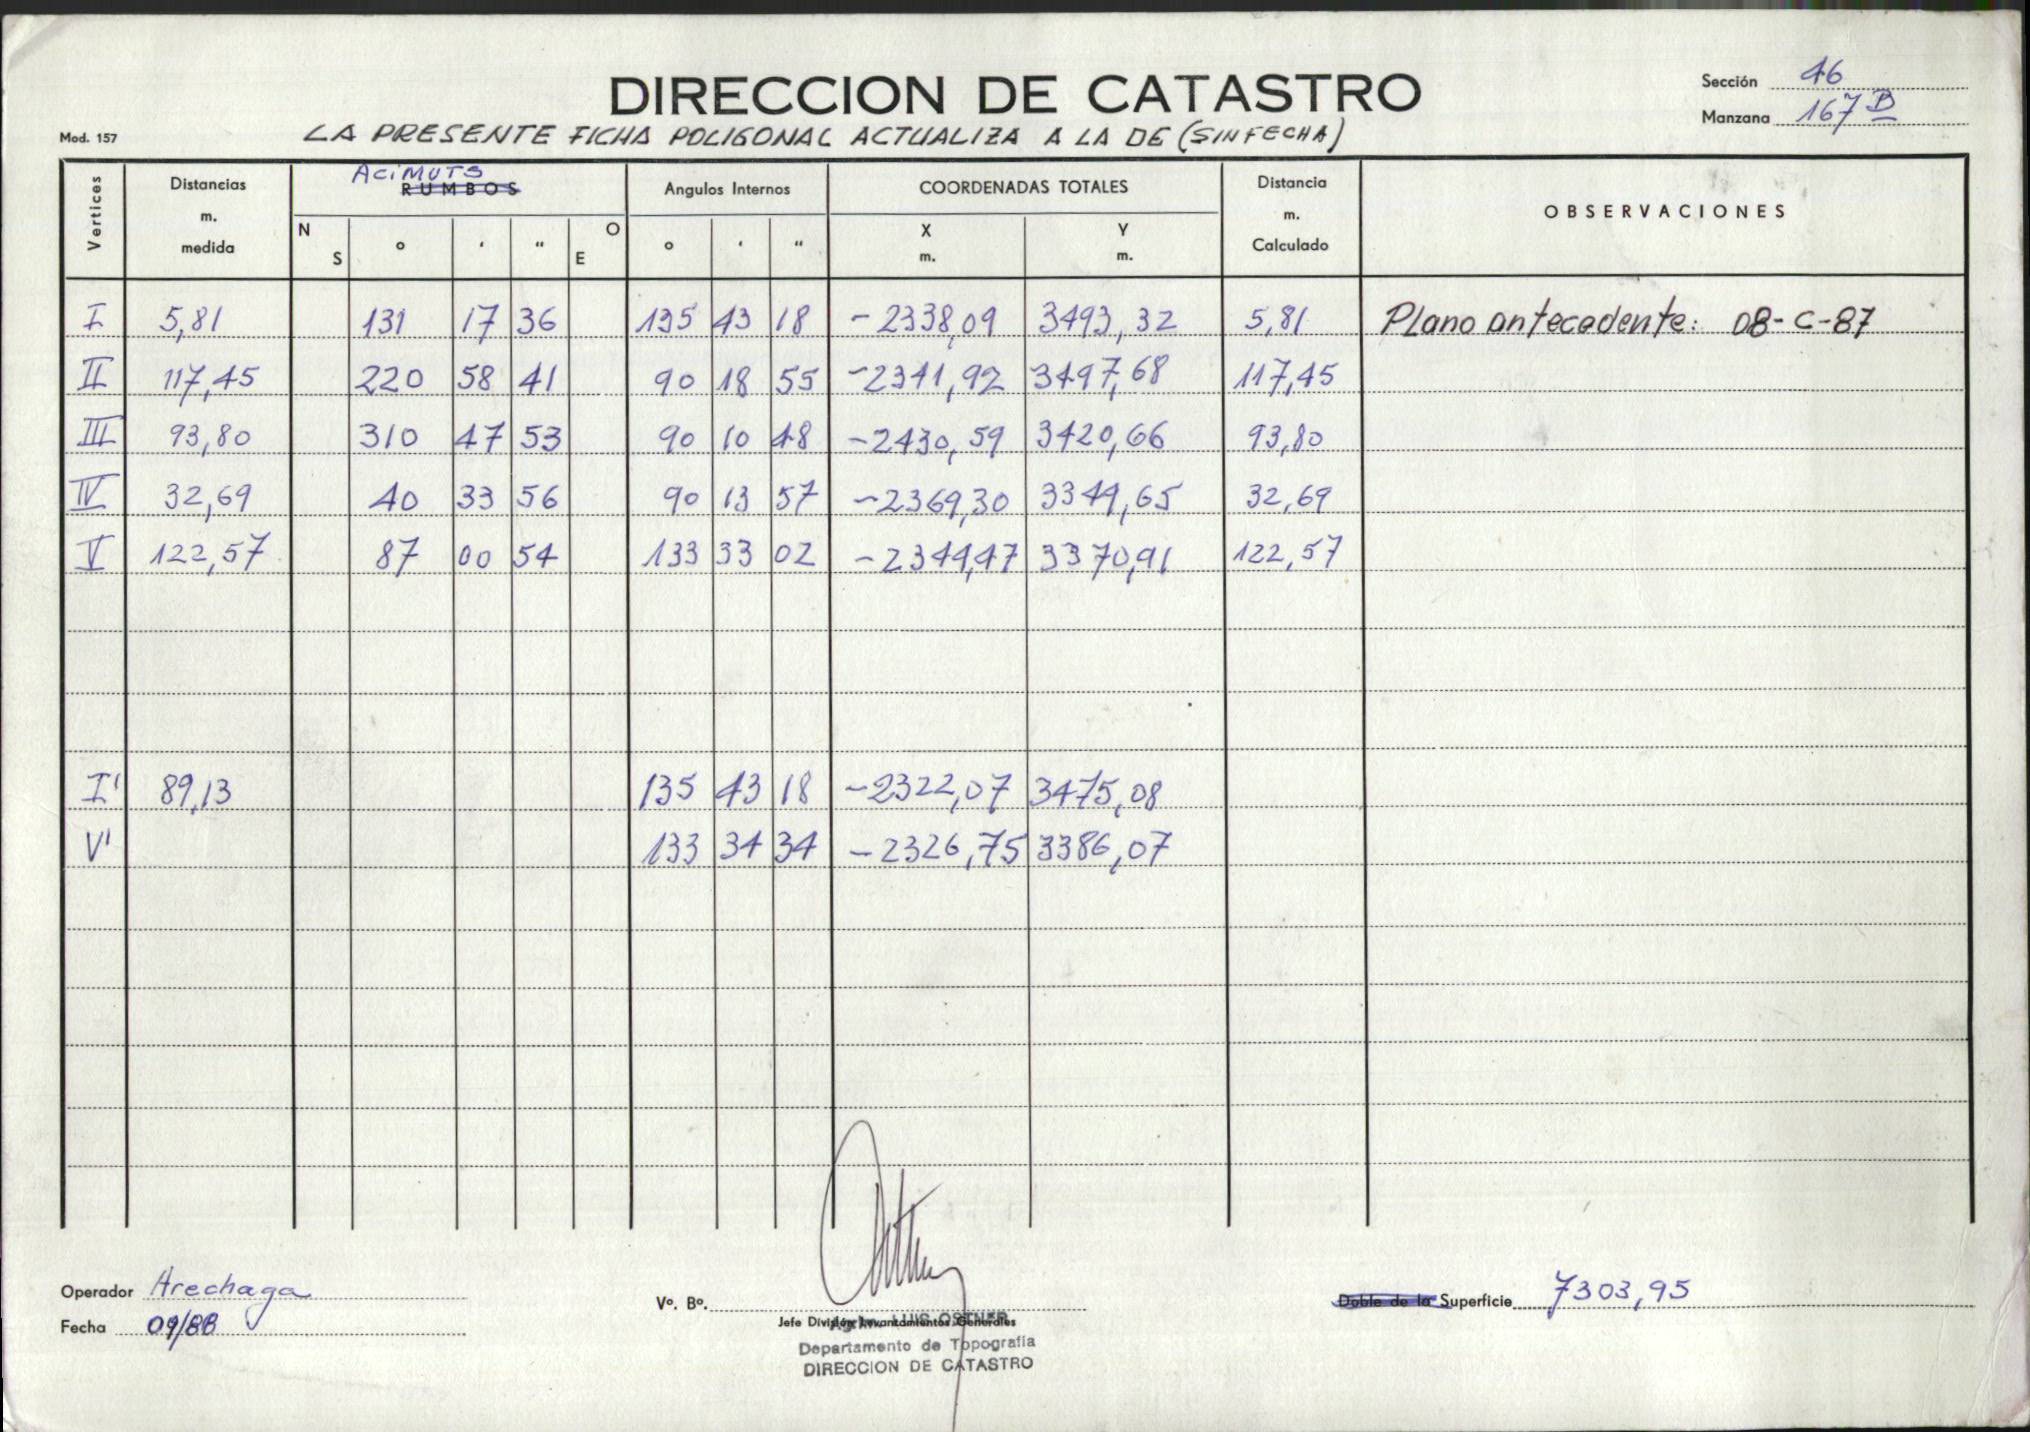 DIRECCION DE CATASTRO
Sección 46
Manzana 167 B
Mod. 157
LA PRESENTE FICHA POLIGONAL ACTUALIZA A LA DE (SIN FECHA)
Vertices Distancias m. medida ACIMUTS RUMBOS Angulos Internos COORDENADAS TOTALES Distancia m. Calculado OBSERVACIONES
N S o ‘ “ O E o ‘ “ X m. Y m.
I 5,81 131 17 36 135 43 18 -2338,09 3493,32 5,81 Plano antecedente: 08-C-87
II 117,45 220 58 41 90 18 55 -2341,92 3497,68 117,45
III 93,80 310 47 53 90 10 48 -2430,59 3420,66 93,80
IV 32,69 40 33 56 90 13 57 -2369,30 3349,65 32,69
V 122,57 87 00 54 133 33 02 -2344,47 3370,91 122,57
I' 89,13 135 43 18 -2322,07 3475,08
V' 133 34 34 -2326,75 3386,07
Operador Arechaga
Fecha 09/88
Vº. Bº.
Jefe División Levantamientos Generales
LUIS OSTNER
Departamento de Topografía
DIRECCION DE CATASTRO
Doble de la Superficie 7303,95